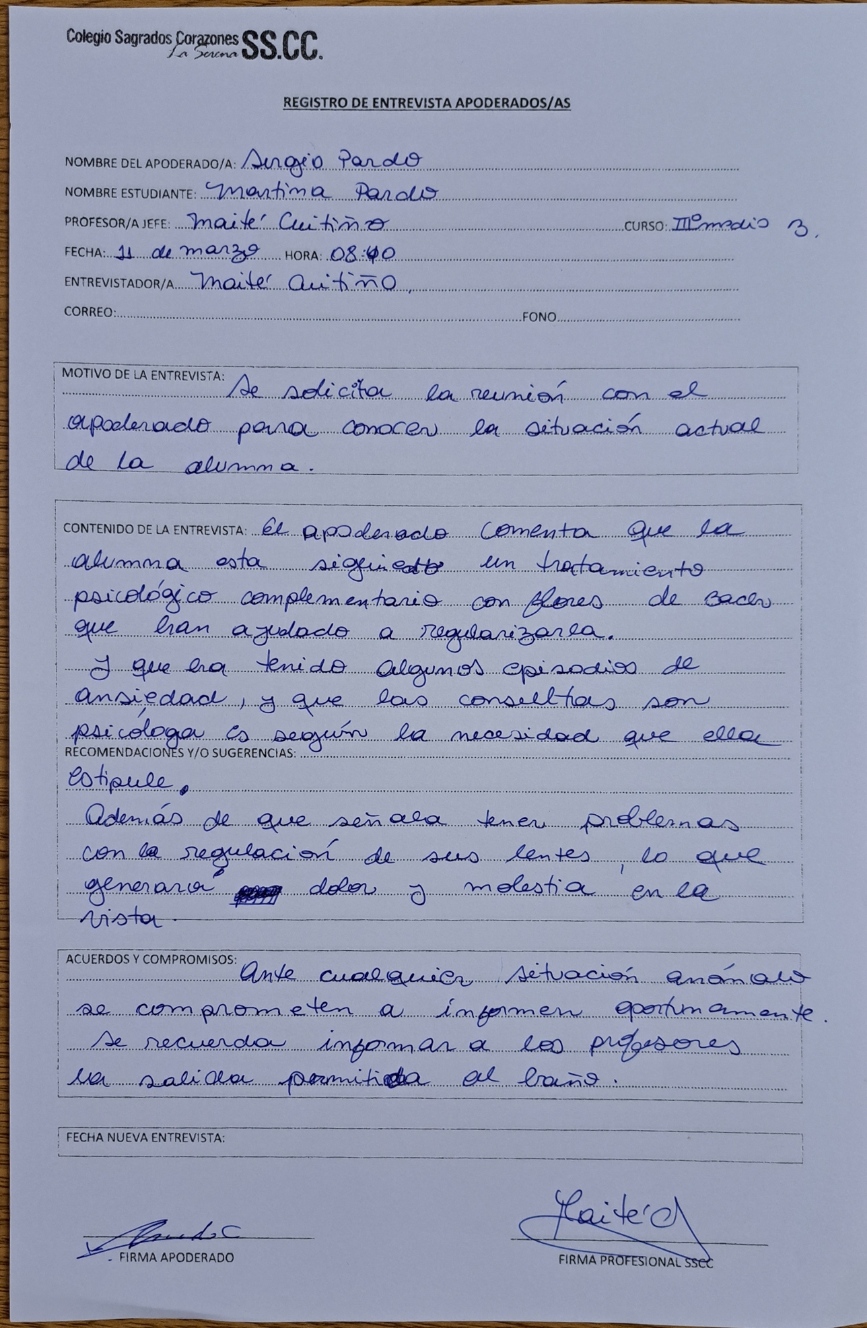 Colegio Sagrados Corazones SS.CC.
La Serena
REGISTRO DE ENTREVISTA APODERADOS/AS
NOMBRE DEL APODERADO/A: Sergio Pardo
NOMBRE ESTUDIANTE: Martina Pardo
PROFESOR/A JEFE: Maité Cuitiño CURSO: III° medio B.
FECHA: 11 de marzo HORA: 08:40
ENTREVISTADOR/A Maité Cuitiño
CORREO: FONO
MOTIVO DE LA ENTREVISTA: Se solicita la reunión con el
apoderado para conocer la situación actual
de la alumna.
CONTENIDO DE LA ENTREVISTA: El apoderado comenta que la
alumna esta siguiendo un tratamiento
psicológico complementario con flores de bach
que han ayudado a regularizarla.
y que ha tenido algunos episodios de
ansiedad, y que las consultas son
psicóloga es según la necesidad que ella
RECOMENDACIONES Y/O SUGERENCIAS:
estipule.
Además de que señala tener problemas
con la regulación de sus lentes, lo que
generará dolor y molestia en la
vista.
ACUERDOS Y COMPROMISOS: Ante cualquier situación
se comprometen a informen oportunamente.
Se recuerda informar a los profesores
la salida permitida al baño.
FECHA NUEVA ENTREVISTA:
FIRMA APODERADO
Maité C
FIRMA PROFESIONAL SSCC